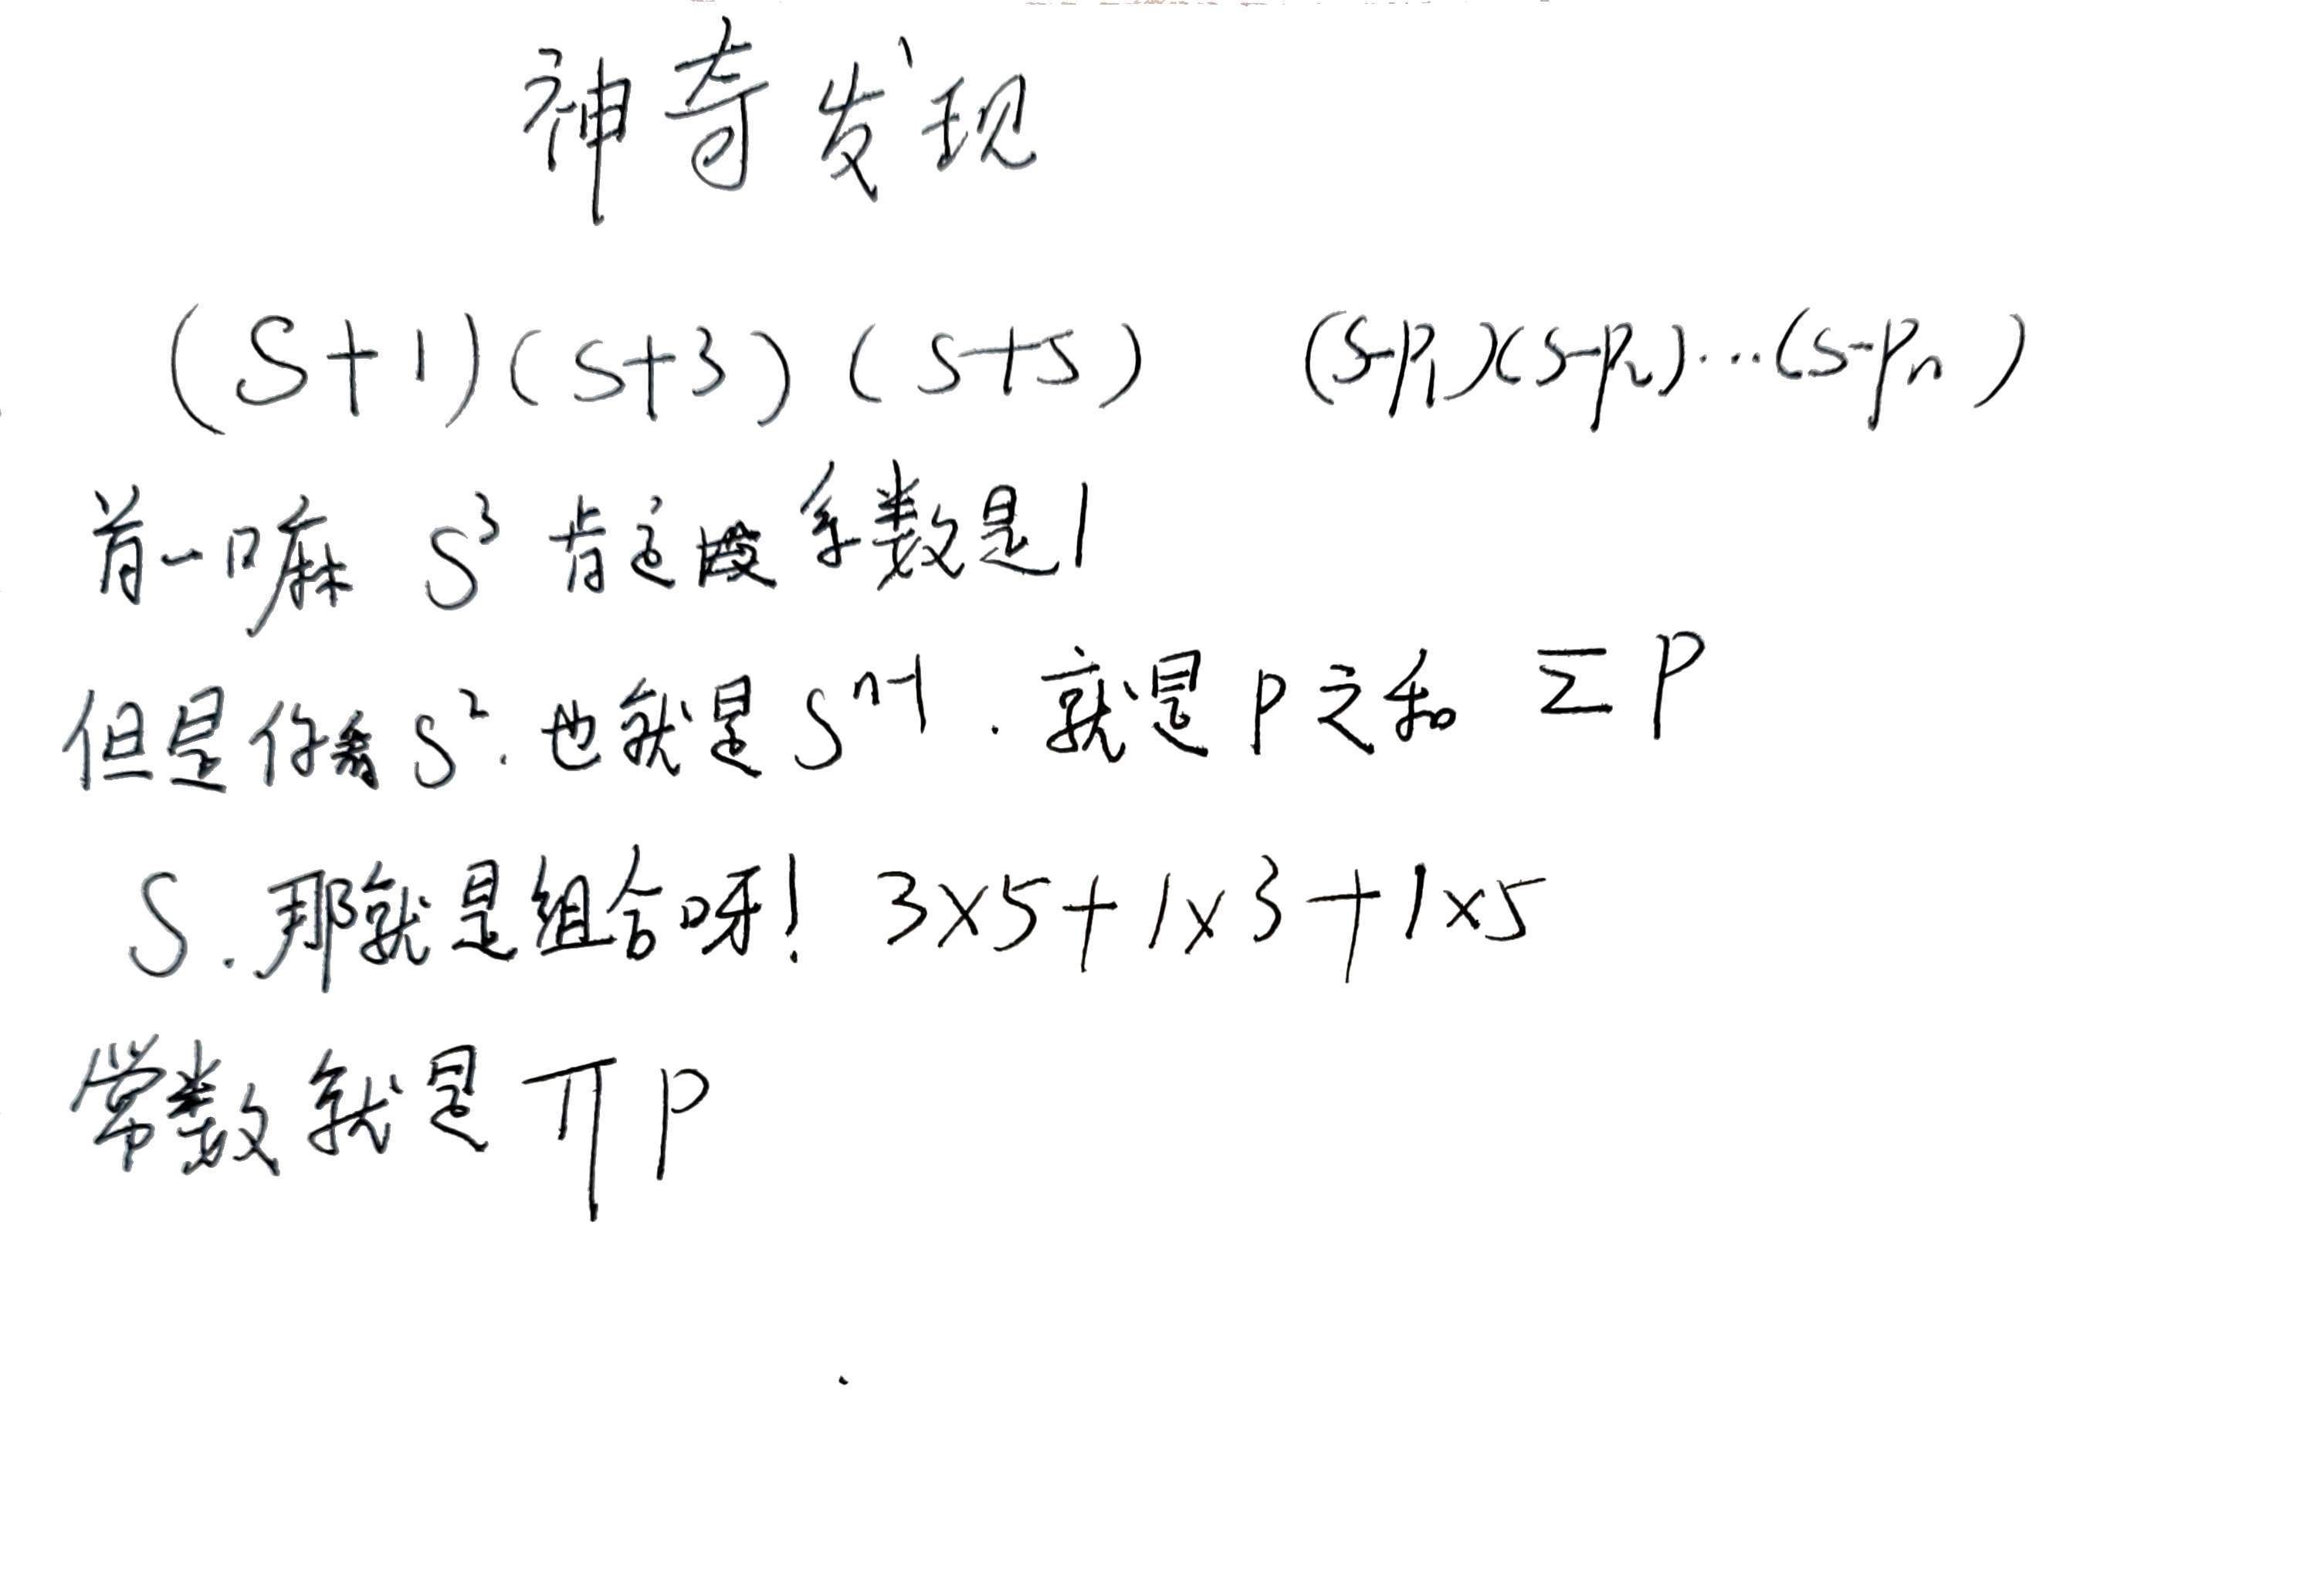 神奇发现
(S+1)(S+3)(S+5) (S-P₁)(S-P₂)...(S-Pₙ)
首一嘛 S³ 肯定 系数是1
但是你看 S². 也就是 Sⁿ⁻¹. 就是 P 之和 Σ P
S. 那就是组合呀! 3×5+1×3+1×5
常数就是 ∏ P